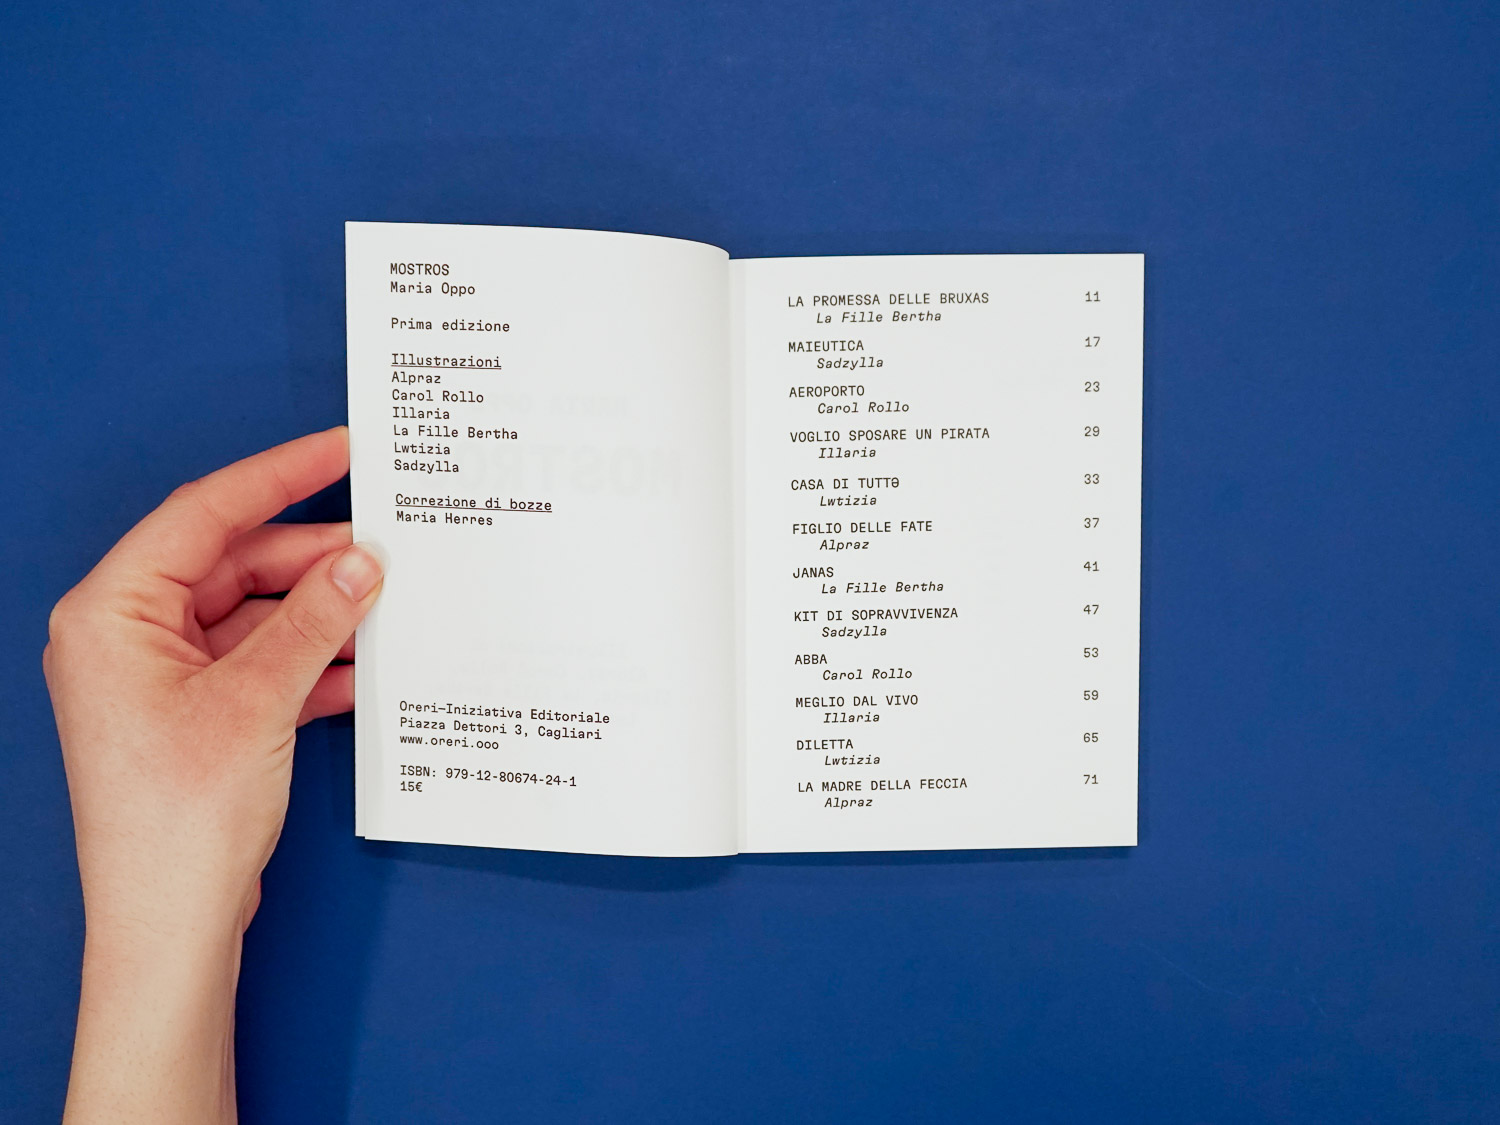 MOSTROS
Maria Oppo
Prima edizione
Illustrazioni
Alpraz
Carol Rollo
Illaria
La Fille Bertha
Lwtizia
Sadzylla
Correzione di bozze
Maria Herres
Oreri—Iniziativa Editoriale
Piazza Dettori 3, Cagliari
www.oreri.ooo
ISBN: 979-12-80674-24-1
15€
LA PROMESSA DELLE BRUXAS 11
La Fille Bertha
MAIEUTICA 17
Sadzylla
AEROPORTO 23
Carol Rollo
VOGLIO SPOSARE UN PIRATA 29
Illaria
CASA DI TUTTƏ 33
Lwtizia
FIGLIO DELLE FATE 37
Alpraz
JANAS 41
La Fille Bertha
KIT DI SOPRAVVIVENZA 47
Sadzylla
ABBA 53
Carol Rollo
MEGLIO DAL VIVO 59
Illaria
DILETTA 65
Lwtizia
LA MADRE DELLA FECCIA 71
Alpraz